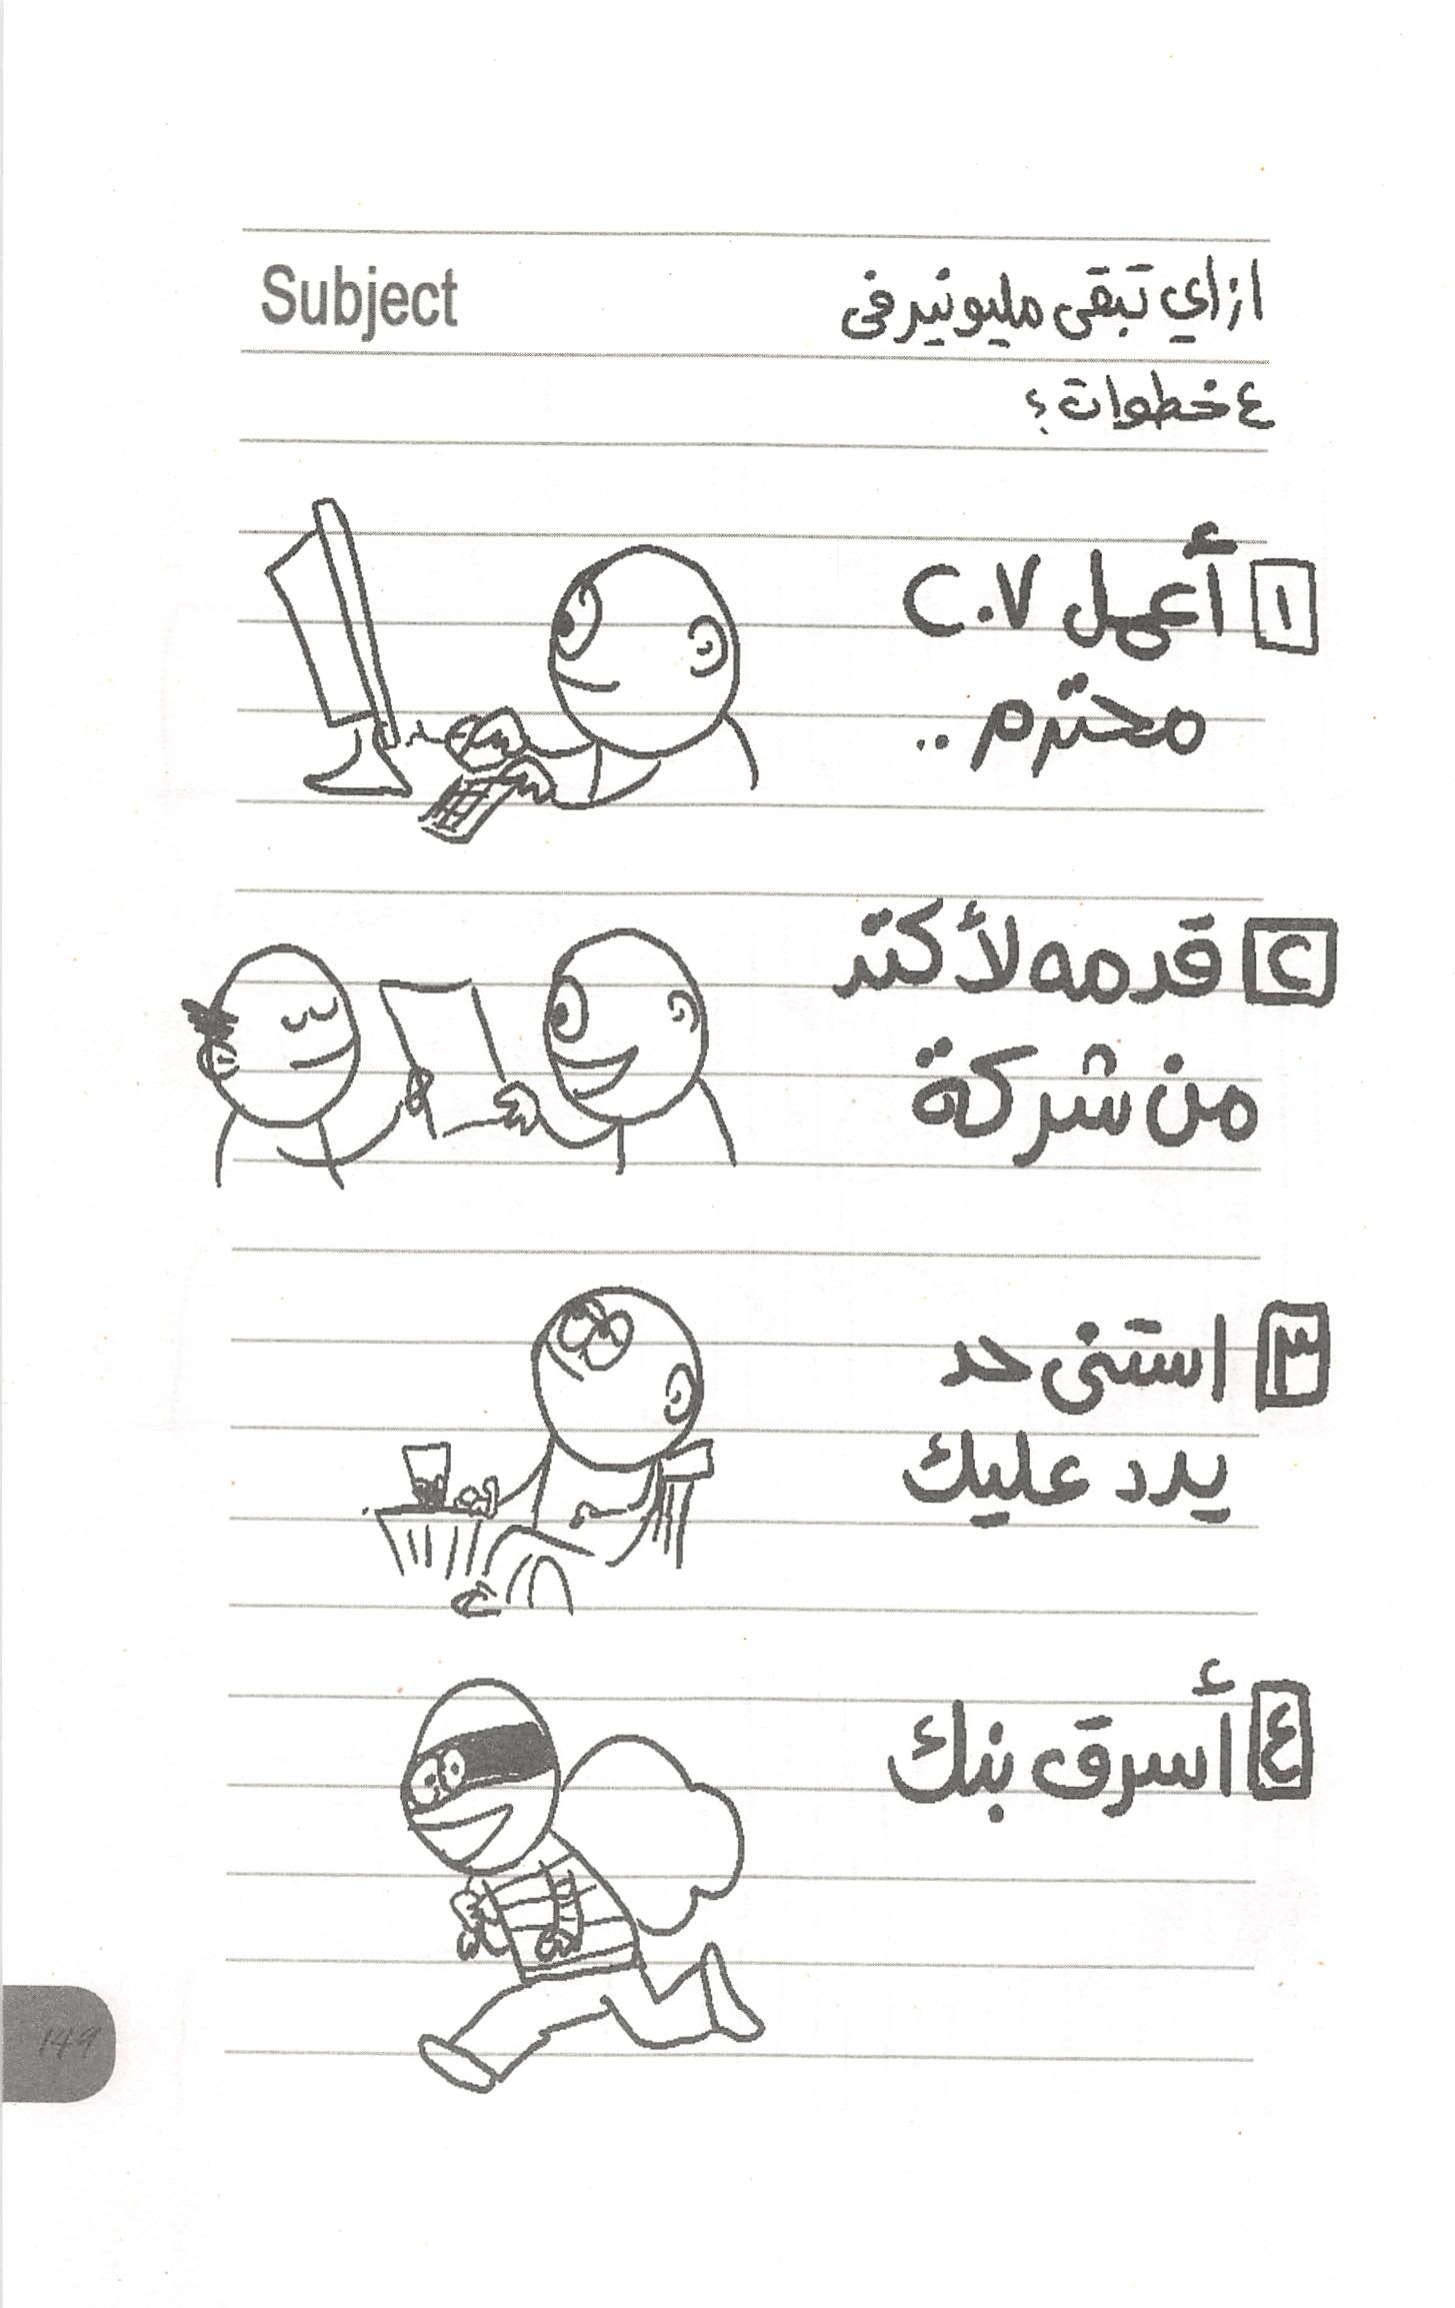 Subject
ازاي تبقى مليونير فى
٤ خطوات ؟
١ أعمل C.V
محترم ..
٢ قدمه لأكتر
من شركة
٣ استنى حد
يرد عليك
٤ أسرق بنك
149